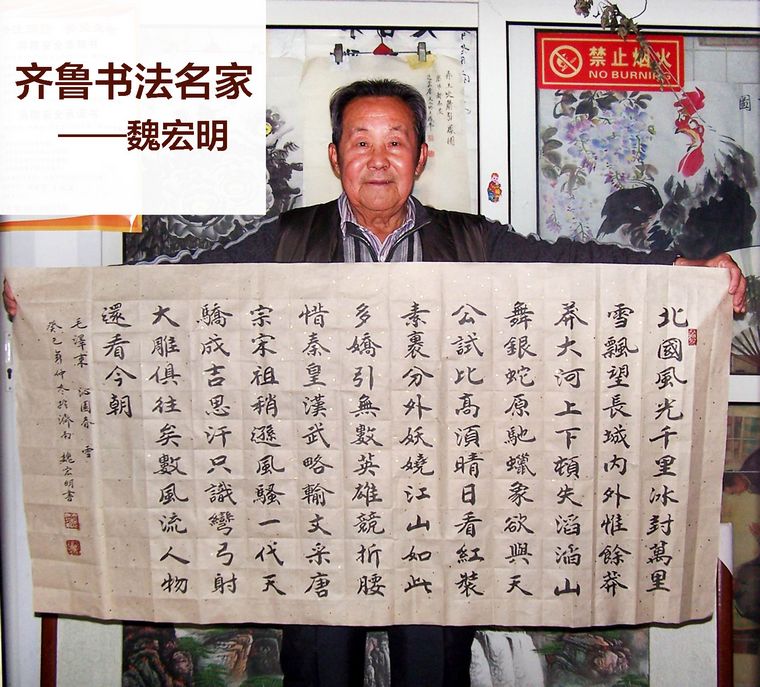 齐鲁书法名家
——魏宏明
禁止烟火
NO BURNING
北國風光千里冰封萬里
雪飄望長城内外惟餘莽
莽大河上下頓失滔滔山
舞銀蛇原馳蠟象欲與天
公試比高湏晴日看紅裝
素裹分外妖嬈江山如此
多嬌引無數英雄競折腰
惜秦皇漢武略輸文采唐
宗宋祖稍遜風騷一代天
驕成吉思汗只識彎弓射
大雕俱往矣數風流人物
還看今朝
毛澤東 沁園春 雪
癸巳年仲冬於濟南 魏宏明書